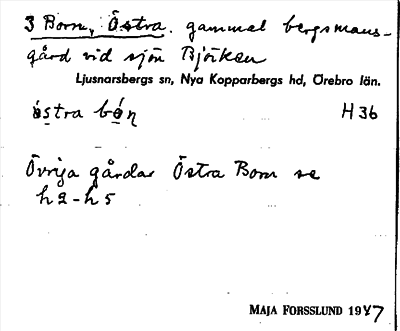 3 Born, Östra. gammal bergsmans-
gård vid sjön Björken
Ljusnarsbergs sn, Nya Kopparbergs hd, Örebro län.
östra bón H 36
Övriga gårdar Östra Born se
h 2 - h 5
MAJA FORSSLUND 1947